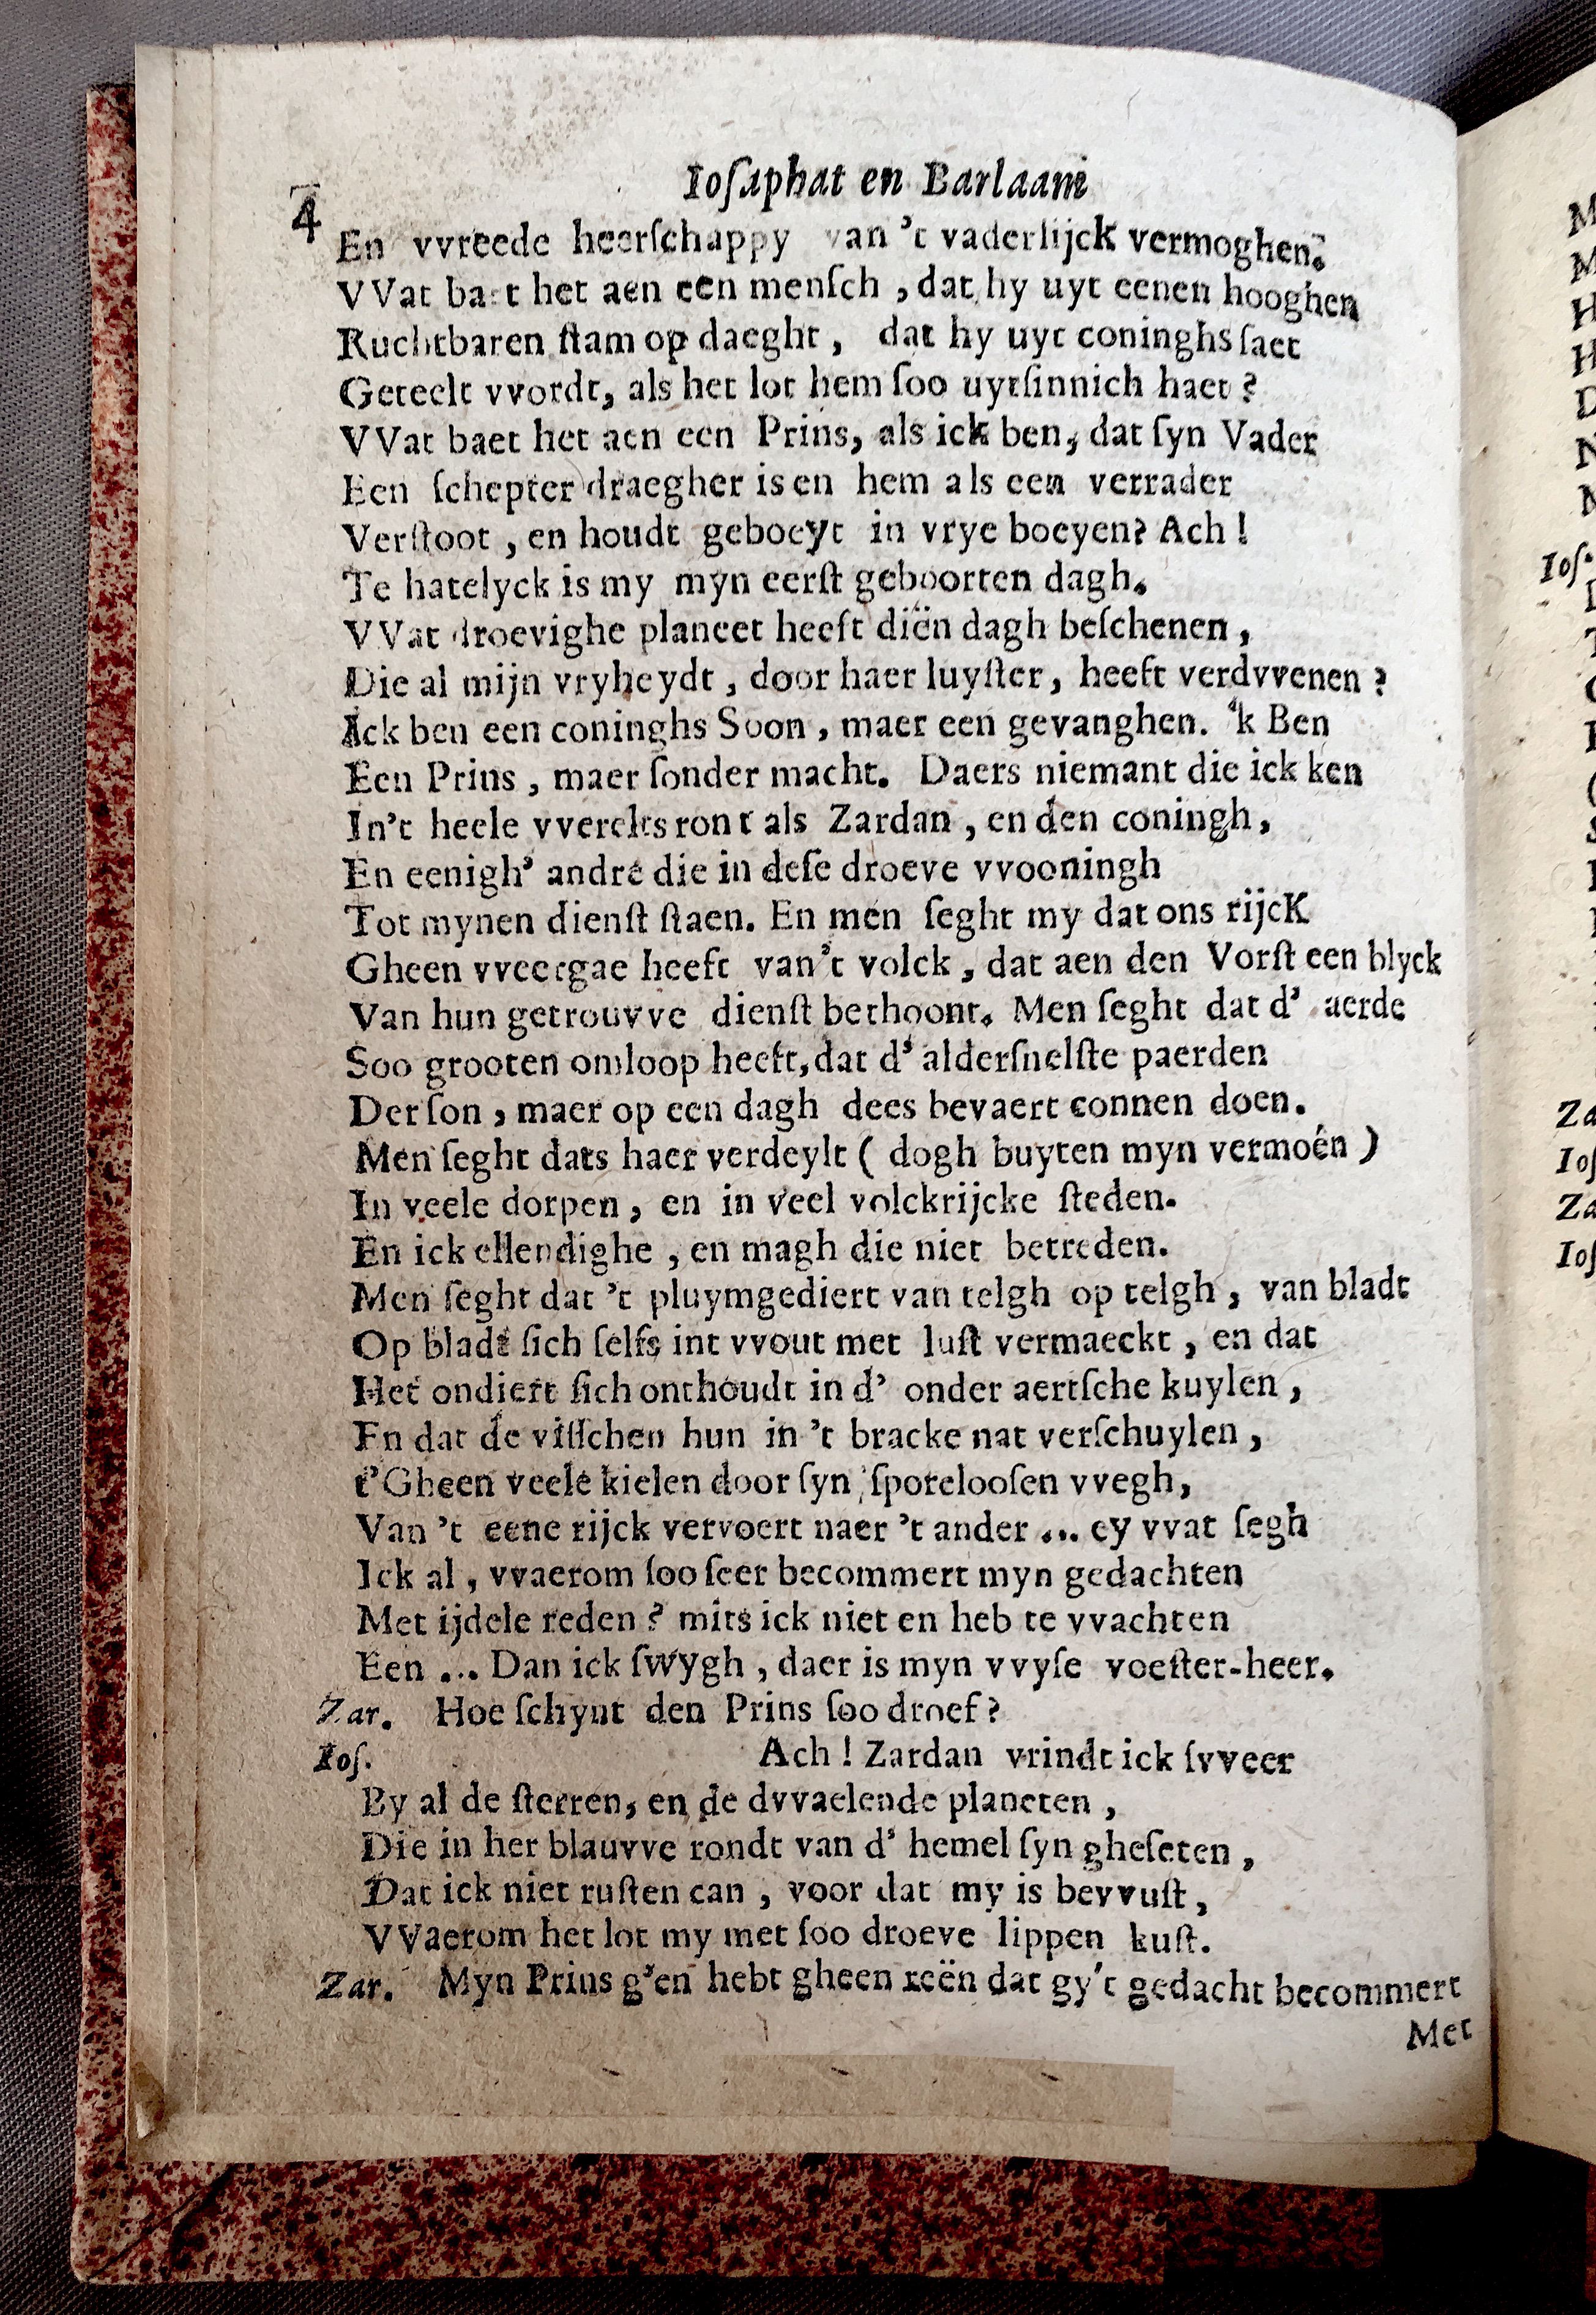 4
Ioſaphat en Barlaam
En vvreede heerſchappy van 't vaderlijck vermoghen.
VVat baet het aen een menſch , dat hy uyt eenen hooghen
Ruchtbaren ſtam op daeght , dat hy uyt coninghs ſaet
Geteelt vvordt, als het lot hem ſoo uytſinnich haet ?
VVat baet het aen een Prins, als ick ben, dat ſyn Vader
Een ſchepter draegher is en hem als een verrader
Verſtoot , en houdt geboeyt in vrye boeyen? Ach !
Te hatelyck is my myn eerſt geboorten dagh.
VVat droevighe planeet heeft diën dagh beſchenen ,
Die al mijn vryheydt , door haer luyſter, heeft verdvvenen ?
Ick ben een coninghs Soon , maer een gevanghen. 'k Ben
Een Prins , maer ſonder macht. Daers niemant die ick ken
In't heele vverelts ront als Zardan , en den coningh,
En eenigh' andre die in deſe droeve vvooningh
Tot mynen dienſt ſtaen. En men ſeght my dat ons rijcK
Gheen vveergae heeft van't volck , dat aen den Vorſt een blyck
Van hun getrouvve dienſt bethoont. Men ſeght dat d' aerde
Soo grooten omloop heeft, dat d' alderſnelſte paerden
Der ſon , maer op een dagh dees bevaert connen doen.
Men ſeght dats haer verdeylt ( dogh buyten myn vermoén )
In veele dorpen , en in veel volckrijcke ſteden.
En ick ellendighe , en magh die niet betreden.
Men ſeght dat 't pluymgediert van telgh op telgh , van bladt
Op bladt ſich ſelfs int vvout met luſt vermaeckt , en dat
Het ondiert ſich onthoudt in d' onder aertſche kuylen ,
En dat de viſſchen hun in 't bracke nat verſchuylen ,
t'Gheen veele kielen door ſyn ſporelooſen vvegh,
Van 't eene rijck vervoert naer 't ander ... ey vvat ſegh
Ick al , vvaerom ſoo ſeer becommert myn gedachten
Met ijdele reden ? mits ick niet en heb te vvachten
Een ... Dan ick ſwygh , daer is myn vvyſe voeſter-heer.
Zar. Hoe ſchynt den Prins ſoo droef ?
Ioſ. Ach ! Zardan vrindt ick ſvveer
By al de ſterren, en de dvvaelende planeten ,
Die in het blauvve rondt van d' hemel ſyn gheſeten ,
Dat ick niet ruſten can , voor dat my is bevvuſt ,
VVaerom het lot my met ſoo droeve lippen kuſt.
Zar. Myn Prins g'en hebt gheen reën dat gy't gedacht becommert
Met
Ioſ.
Za
Ioſ
Za
Ioſ